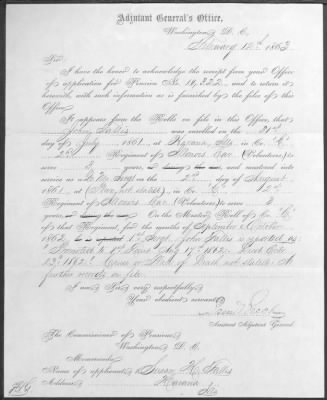 Adjutant General's Office,
Washington D. C.
February 12th, 1863
Sir:
I have the honor to acknowledge the receipt from your Office
of application for Pension No. 16,222, and to return it
herewith, with such information as is furnished by the files of this
Office.
It appears from the Rolls on file in this Office, that
John Fallis was enrolled on the 21st
day of July 1861 at Havana, Ills. in Co. "C"
2nd Regiment of Illinois Cav. (Volunteers) to
serve 3 years, and mustered into
service as on the day of August
1861 at (Place not stated), in Co. "C" 2nd
Regiment of Illinois Cav. (Volunteers) to serve 3
years, On the Muster Roll of Co. "C"
of that Regiment, for the months of September & October
1862, John Fallis is reported as:
1862. Died Oct.
1862. Cause of Death not stated. No
further record on file.
I am Sir very respectfully
Your obedient servant,
Assistant Adjutant General
The Commissioner of Pensions
Washington D. C.
Memoranda
Name of applicant Susan H. Fallis
Address, Havana
Ills